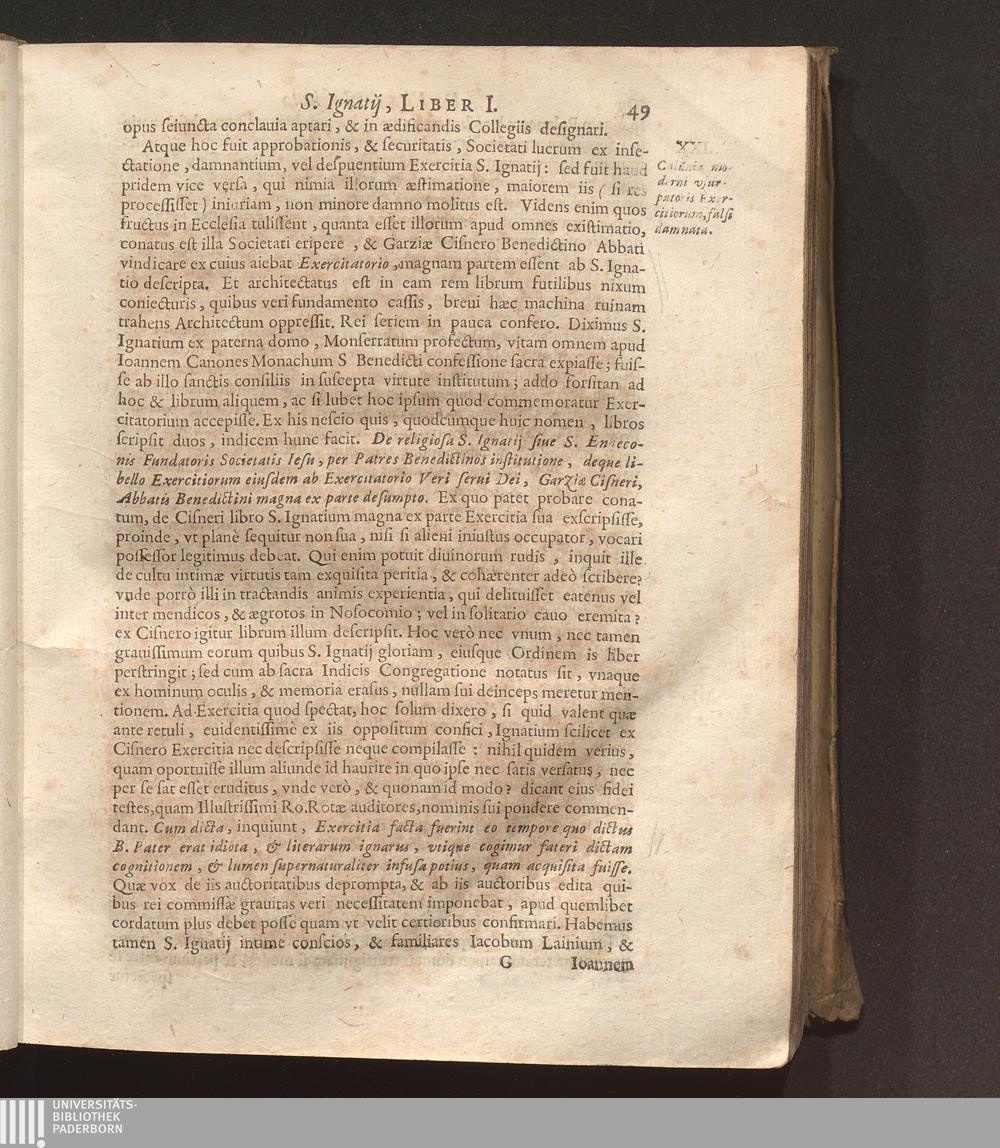 S. Ignatij, LIBER I. 49
opus ſeiuncta conclauia aptari, & in ædificandis Collegiis deſignari.
Atque hoc fuit approbationis, & ſecuritatis, Societati lucrum ex inſe-
ctatione, damnantium, vel deſpuentium Exercitia S. Ignatij: ſed fuit haud
pridem vice verſa, qui nimia illorum æſtimatione, maiorem iis (ſi res
proceſſiſſet) iniuriam, non minore damno molitus eſt. Videns enim quos
fructus in Eccleſia tuliſſent, quanta eſſet illorum apud omnes exiſtimatio,
conatus eſt illa Societati eripere, & Garziæ Ciſnero Benedictino Abbati
vindicare ex cuius aiebat Exercitatorio, magnam partem eſſent ab S. Igna-
tio deſcripta. Et architectatus eſt in eam rem librum futilibus nixum
coniecturis, quibus veri fundamento caſſis, breui hæc machina ruinam
trahens Architectum oppreſſit. Rei ſeriem in pauca confero. Diximus S.
Ignatium ex paterna domo, Monſerratum profectum, vitam omnem apud
Ioannem Canones Monachum S Benedicti confeſſione ſacra expiaſſe; fuiſ-
ſe ab illo ſanctis conſiliis in ſuſcepta virtute inſtitutum; addo forſitan ad
hoc & librum aliquem, ac ſi lubet hoc ipſum quod commemoratur Exer-
citatorium accepiſſe. Ex his neſcio quis, quodcumque huic nomen, libros
ſcripſit duos, indicem hunc facit. De religioſa S. Ignatij ſiue S. Enneco-
nis Fundatoris Societatis Ieſu, per Patres Benedictinos inſtitutione, deque li-
bello Exercitiorum eiuſdem ab Exercitatorio Veri ſerui Dei, Garziæ Ciſneri,
Abbatis Benedictini magna ex parte deſumpto. Ex quo patet probare cona-
tum, de Ciſneri libro S. Ignatium magna ex parte Exercitia ſua exſcripſiſſe,
proinde, vt planè ſequitur non ſua, niſi ſi alieni iniuſtus occupator, vocari
poſſeſſor legitimus debeat. Qui enim potuit diuinorum rudis, inquit ille
de cultu intimæ virtutis tam exquiſita peritia, & cohærenter adeò ſcribere?
vnde porrò illi in tractandis animis experientia, qui delituiſſet eatenus vel
inter mendicos, & ægrotos in Noſocomio; vel in ſolitario cauo eremita?
ex Ciſnero igitur librum illum deſcripſit. Hoc verò nec vnum, nec tamen
grauiſſimum eorum quibus S. Ignatij gloriam, eiuſque Ordinem is liber
perſtringit; ſed cum ab ſacra Indicis Congregatione notatus ſit, vnaque
ex hominum oculis, & memoria eraſus, nullam ſui deinceps meretur men-
tionem. Ad Exercitia quod ſpectat, hoc ſolum dixero, ſi quid valent quæ
ante retuli, euidentiſſimè ex iis oppoſitum confici, Ignatium ſcilicet ex
Ciſnero Exercitia nec deſcripſiſſe neque compilaſſe : nihil quidem verius,
quam oportuiſſe illum aliunde id haurire in quo ipſe nec ſatis verſatus, nec
per ſe ſat eſſet eruditus, vnde verò, & quonam id modo? dicant eius fidei
teſtes, quam Illuſtriſſimi Ro. Rotæ auditores, nominis ſui pondere commen-
dant. Cum dicta, inquiunt, Exercitia facta fuerint eo tempore quo dictus
B. Pater erat idiota, & literarum ignarus, vtique cogimur fateri dictam
cognitionem, & lumen ſupernaturaliter infuſa potius, quam acquiſita fuiſſe.
Quæ vox de iis auctoritatibus deprompta, & ab iis auctoribus edita qui-
bus rei commiſſæ grauitas veri neceſſitatem imponebat, apud quemlibet
cordatum plus debet poſſe quam vt velit certioribus confirmari. Habemus
tamen S. Ignatij intime conſcios, & familiares Iacobum Lainium, &
G Ioannem
XXI.
mo-
derni vſur-
patoris Exer-
citiorum, falſi
damnata.
UNIVERSITÄTS-
BIBLIOTHEK
PADERBORN